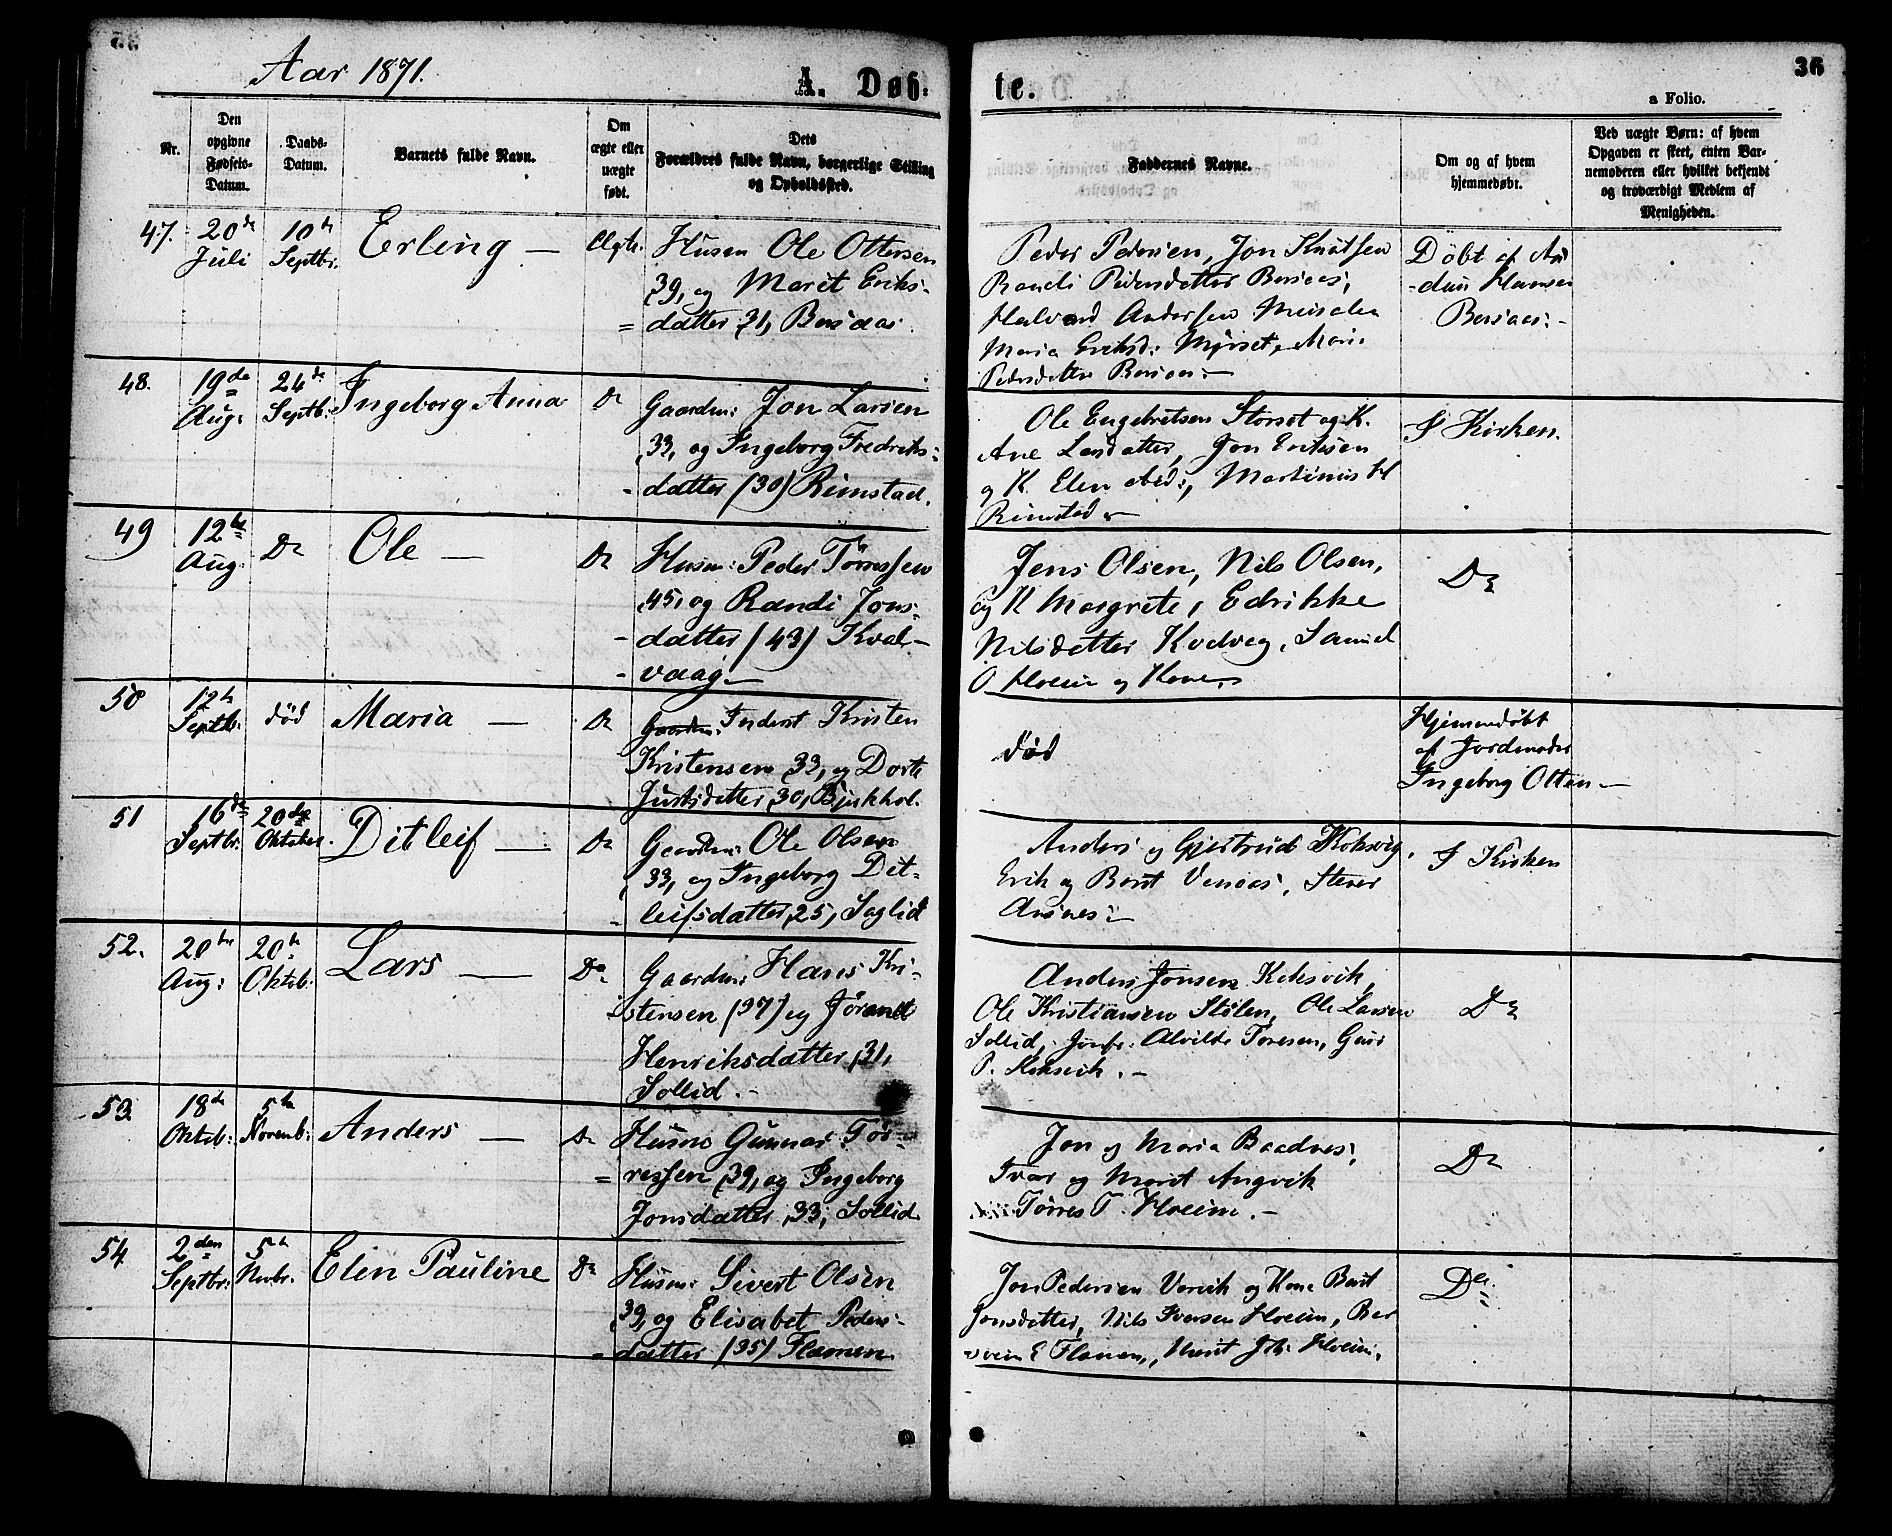 Aar 1871.
A. Døb-
te.
36
a Folio.
Nr.
Den
opgivne
Fødsels-
Datum.
Daabs-
Datum.
Barnets fulde Navn.
Om
ægte eller
uægte
født.
Dets
Forældres fulde Navn, borgerlige Stilling
og Opholdssted.
Faddernes Navne.
Om og af hvem
hjemmedøbt.
Ved uægte Børn: af hvem
Opgaven er skeet, enten Bar-
nemoderen eller hvilket bekjendt
og troværdigt Medlem af
Menigheden.
47.
20de
Juli
10de
Septbr.
Erling —
Husm Ole Ottersen
39, og Marit Eriks-
= datter 31, Bersaas.
Peder Pedersen, Jon Knutsen
Randi Pedersdatter Bersaas,
Halvard Andersen
Maria Eriksd: Myrset, Mari
Pedersdatter Bersaas —
Døbt af An
-dun Hansen
Bersaas: -
48.
19de
Aug:
24de
Septb:
Ingeborg Anna
Do
Gaardm: Jon Larsen
33, og Ingeborg Fredriks-
- datter (30) Rimstad.
Ole Engebretsen Storset og K.
Ane Larsdatter, Jon Eriksen
og K. Elen ibid:, Martinus H
Rimstad -
I Kirken.
49
12te
Aug:
Do
Ole —
Do
Husm: Peder Tørressen
45, og Randi Jons-
- datter (43) Kval-
- vaag —
Jens Olsen, Nils Olsen,
og K Margrete, Edrikke
Nilsdatter Kvalvag,
O. Hoem og Kone
Do
50
12te
Septb:
død
Maria —
Do
Inderst Kristen
Kristensen 33, og Dorte
Justsdatter, 30,
død
Hjemmedøbt
af Jordmoder
Ingeborg Olsen —
51
16de
Septbr:
20de
Oktober.
Ditleif —
Do
Gaardm: Ole Olsen
33, og Ingeborg Dit-
- leifsdatter, 25, Soglid
Anders og Gjertrud Koksvig,
Erik og Berit
I Kirken
52.
20de
Aug:
20de
Oktob.
Lars —
Do
Gaardm: Hans Kri-
- stensen (37) og Jørand
Henriksdatter, 31,
Sollid. -
Anders Jonsen Koksvik,
Ole Kristiansen Stølen, Ole Larsen
Sollid, Jomfr. Alvilde Toresen, Guri
P. Koksvik. -
Do
53
18de
Oktob:
5te
Novemb:
Anders —
Do
Husm Gunnar Tør-
= ressen, 39, og Ingeborg
Jonsdatter, 33, Sollid
Jon og Maria Baadnes,
Ivar og Marit Angvik
Tørres T. Hoem. -
Do
54.
2den
Septbr:
5te
Novbr.
Elen Pauline
Do
Husm: Sivert Olsen
39, og Elisabet Peders-
- datter (35) Flemmen
Jon Pedersen Vorvik og Kone Berit
Jonsdatter, Nils Iversen Hoem, Ber
svein E Flemmen, Marit Joh. Hoem.
Do